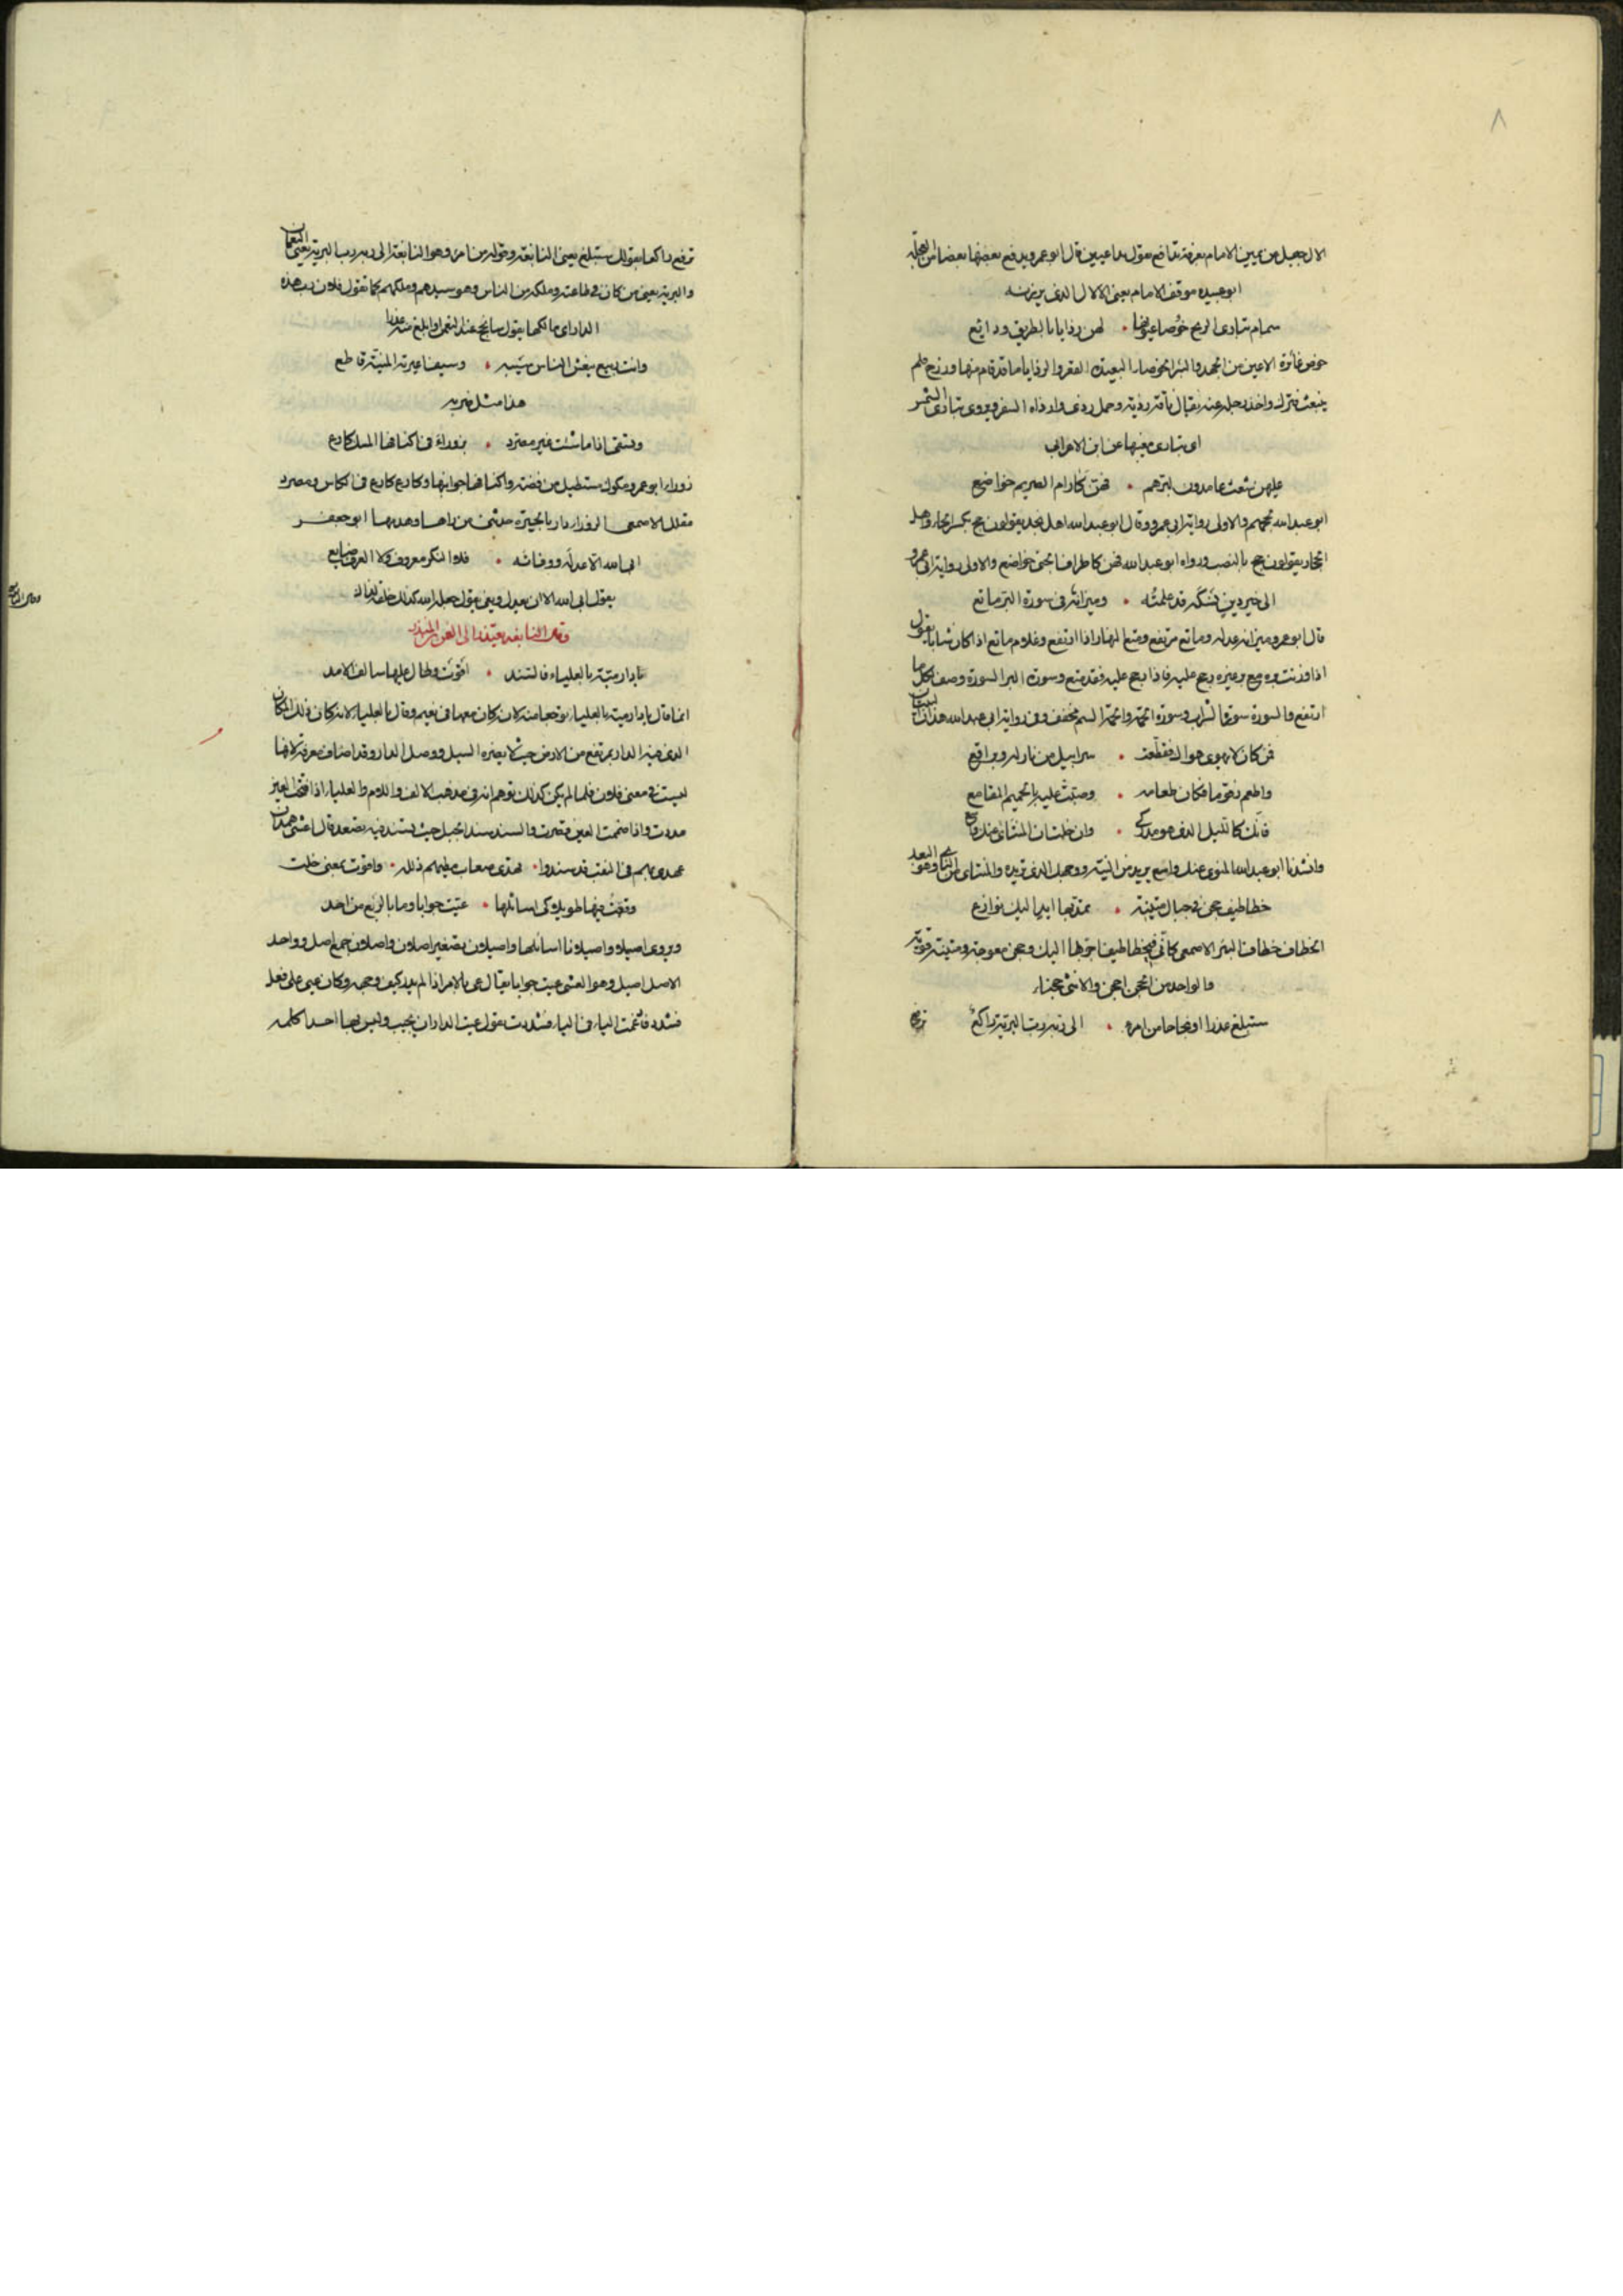 ٨
الال جبيل من يمين الامام بعرفة تدافع يقول تداعيين قال ابو عمرو يدفع بعضها بعضا من العجلة
ابو عبيده موقف الامام يعني الالال الذي يريدنه
سمام تبارى الريح خوصا عيونها • لهن رذايا بالطريق ودائع
خوص غائرة الاعين من الجهد والبئر الخوصاء البعيدة القعر والرذايا ما قد قام منها ورزح فلم
ينبعث فترك واخذ رحله عنه يقال ناقة رذية وجمل رذي وارذاه السفر ويروى تبارى الشمس
اي تبارى مغيبها عن ابن الاعرابي
عليهن شعث عامدون لبرهم • فهن كآرام الصريم خواضع
ابو عبد الله لحجهم والاولى رواية ابي عمرو وقال ابو عبد الله اهل نجد يقولون حج بكسر الحاء واهل
الحجاز يقولون حج بالنصب ورواه ابو عبد الله فهن كاطراف الحنى خواضع والاولى رواية ابي عمرو
الى خير دين نسكه قد علمته • وميزانه في سورة البر ماتع
قال ابو عمرو ميزانه عدله وماتع مرتفع ومتع النهار اذا ارتفع وغلام ماتع اذا كان شابا يقول
اذا وزنت وغيره رجح عليه فاذا رجح عليه فقد متع وسورة البر السورة وصف لكل ما
ارتفع والسورة سورة الشراب وسورة الحمة والحمة السم مخفف وفي رواية ابي عبد الله هذان البيتان
فمن كان لا يهوى هواك فقطعت • سرابيل من نار له وبراقع
واطعم زقوما فكان طعامه • وصبت عليه بالحميم المقامع
فانك كالليل الذي هو مدركي • وان خلت ان المنتأى عنك واسع
وانشدنا ابو عبد الله المنتوى عنك واسع يريد من النية ووجهك الذي تريده والمنتأى من النأى وهو البعد
خطاطيف حجن في حبال متينة • تمد بها ايد اليك نوازع
الخطاف خطاف البئر الاصمعي كأني في خطاطيف اجر بها اليك وحجن معوجة ومتينة قوية
والواحد من الحجن احجن والانثى حجناء
ستبلغ عذرا او نجاحا من امره • الى ربه رب البرية راكع
ترفع
ترفع راكعا بقولك ستبلغ يعني النابغة وقوله من امره وهو النابغة الى ربه رب البرية يعني النعمان
والبرية يعني من كان في طاعته وملكه من الناس وهو سيدهم وملكهم كما تقول فلان رب هذه
الدار اي مالكها يقول سأنجح عند النعمان وابلغ منه عذرا
وانت ربيع ينعش الناس سيبه • وسيف اعيرته المنية قاطع
هذا مثل ضربه
وتسقى اذا ما شئت غير مصرد • بزوراء في اكنافها المسك كارع
زوراء ابو عمرو مكوك مستطيل من فضة واكنافها جوانبها وكارع كارع في الكاس ومصرد
مقلل الاصمعي الزوراء دار بالحيرة حدثني من رآها وهدمها ابو جعفر
ابى الله الا عدله ووفاءه • فلا النكر معروف ولا العرف ضايع
يقول ابى الله الا ان يعدل ويفي يقول جعله الله كذلك خلقه لذلك
وقال النابغة يعتذر الى النعمن بن المنذر
يا دار مية بالعلياء فالسند • اقوت وطال عليها سالف الامد
انما قال يا دار مية بالعلياء توجعا منه لان كان معها في نعيم وقال بالعلياء لانه كان ذلك المكان
الذي فيه الدار بمرتفع من الارض حيث لا يضره السيل ووصل الدار وقد اضاف معرفة لانها
ليست في معنى فلان فلما لم يكن كذلك توهم انه في مذهب الالف واللام والعلياء اذا فتحت العين
مددت واذا ضممت العين قصرت والسند سند الجبل حيث يسند فيه يصعد قال اعشى همدان
عهدي بهم في النقب قد سندوا • تهدى صعاب مطيهم ذلله • واقوت بمعنى خلت
وقفت فيها طويلا كي اسائلها • عيت جوابا وما بالربع من احد
ويروى اصيلا واصيلانا اسائلها واصيلان تصغير اصلان واصلان جمع اصل وواحد
الاصل اصيل وهو العشي عيت جوابا يقال عي بالامر اذا لم يدر كيف وجهه وكان عيي على فعل
فشدد فادغمت الياء في الياء فشددت يقول عيت الدار ان تجيب وليس بها احد اكلمه